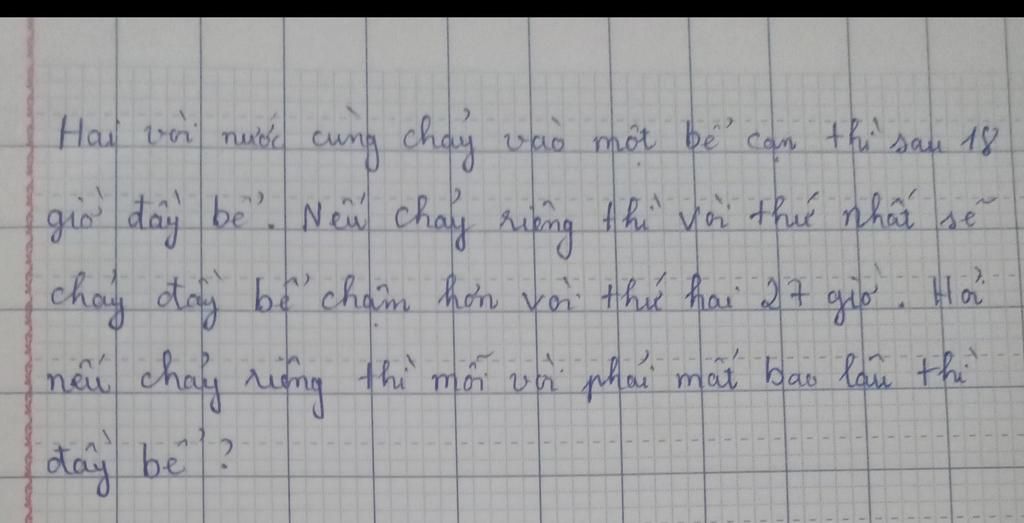 Hai vòi nước cùng chảy vào một bể cạn thì sau 18
giờ đầy bể. Nếu chảy riêng thì vòi thứ nhất sẽ
chảy đầy bể chậm hơn vòi thứ hai 27 giờ. Hỏi
nếu chảy riêng thì mỗi vòi phải mất bao lâu thì
đầy bể?